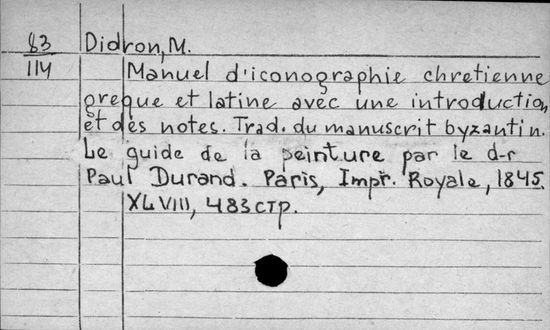 83 Didron, M.
114
Manuel d'iconographie chretienne
greque et latine avec une introduction
et des notes. Trad. du manuscrit byzantin.
Le guide de la peinture par le d-r
Paul Durand. Paris, Impr. Royale, 1845.
XLVIII, 483 стр.